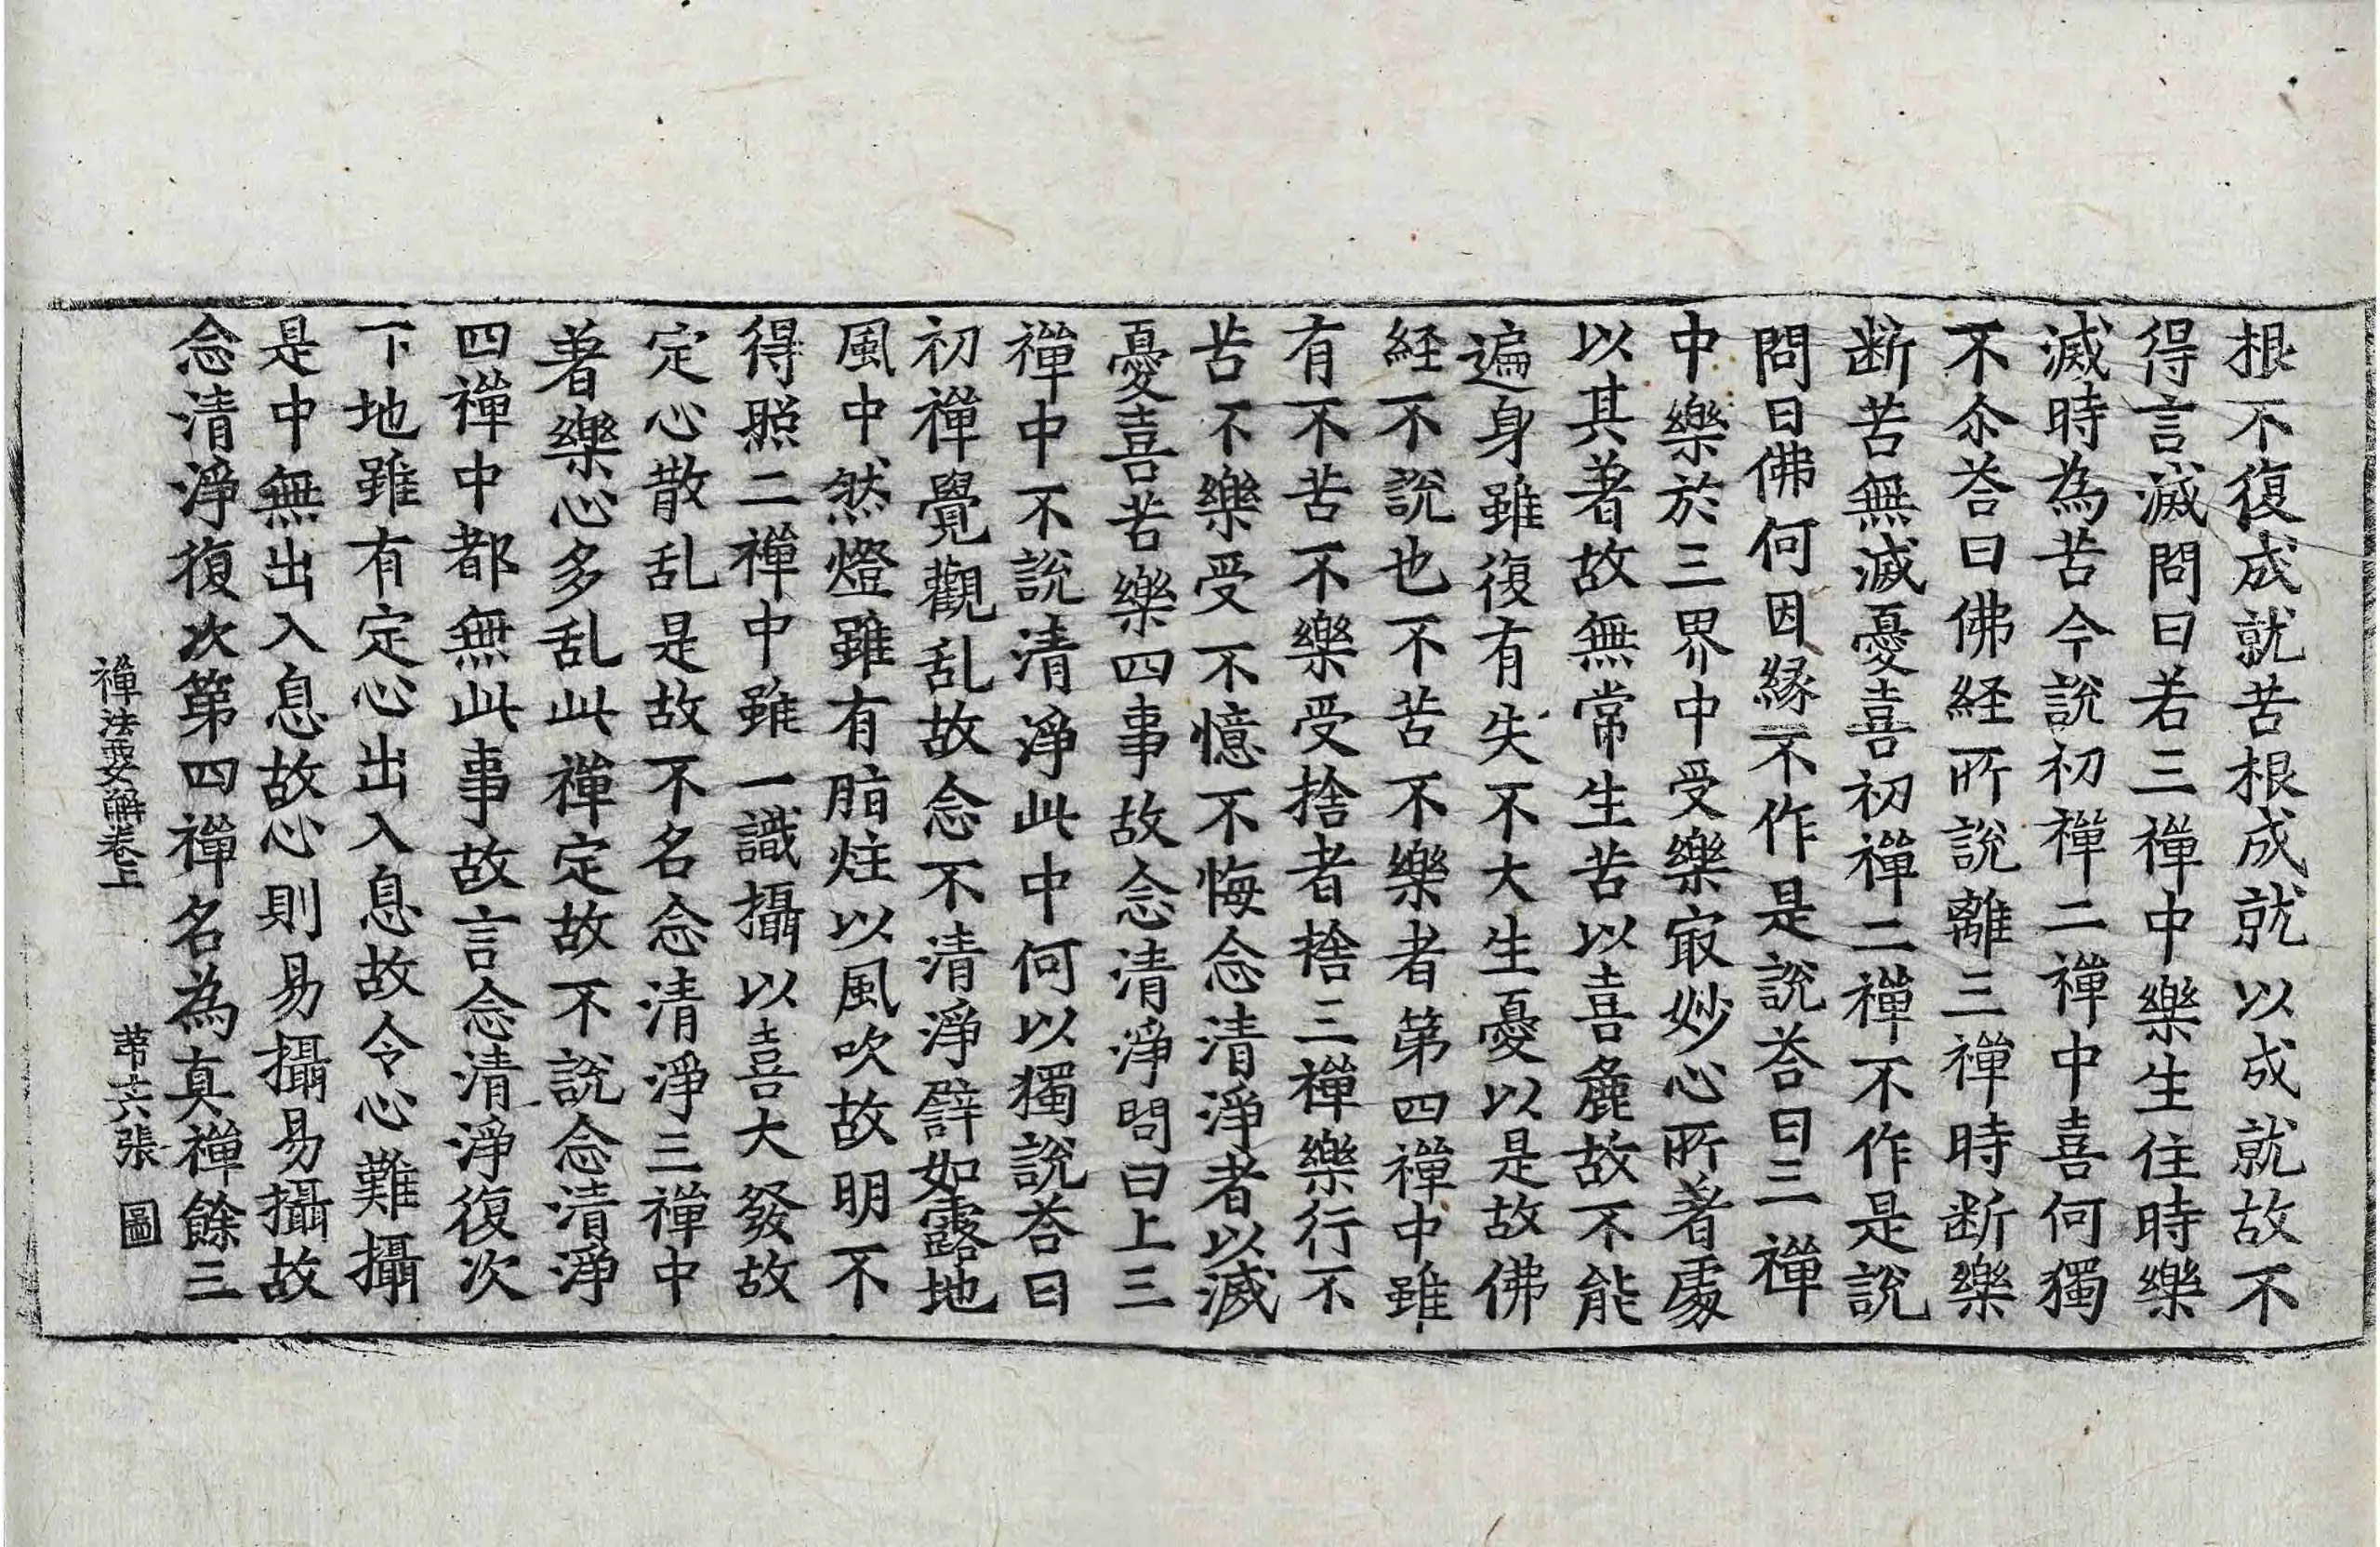 根不復成就苦根成就以成就故不
得言滅問曰若三禪中樂生住時樂
滅時為苦今說初禪二禪中喜何獨
不尒荅曰佛経所說離三禪時断樂
断苦無滅憂喜初禪二禪不作是說
問曰佛何因縁不作是說荅曰三禪
中樂於三界中受樂㝡妙心所著䖏
以其著故無常生苦以喜麁故不能
遍身雖復有失不大生憂以是故佛
経不說也不苦不樂者第四禪中雖
有不苦不樂受捨者捨三禪樂行不
苦不樂受不憶不悔念清淨者以滅
憂喜苦樂四事故念清淨問曰上三
禪中不說清淨此中何以獨說荅曰
初禪覺觀乱故念不清淨譬如露地
風中然燈雖有脂炷以風吹故明不
得照二禪中雖一識攝以喜大發故
定心散乱是故不名念清淨三禪中
著樂心多乱此禪定故不說念清淨
四禪中都無此事故言念清淨復次
下地雖有定心出入息故令心難攝
是中無出入息故心則易攝易攝故
念清淨復次第四禪名為真禪餘三
禪法要解卷上 苐六張 圖